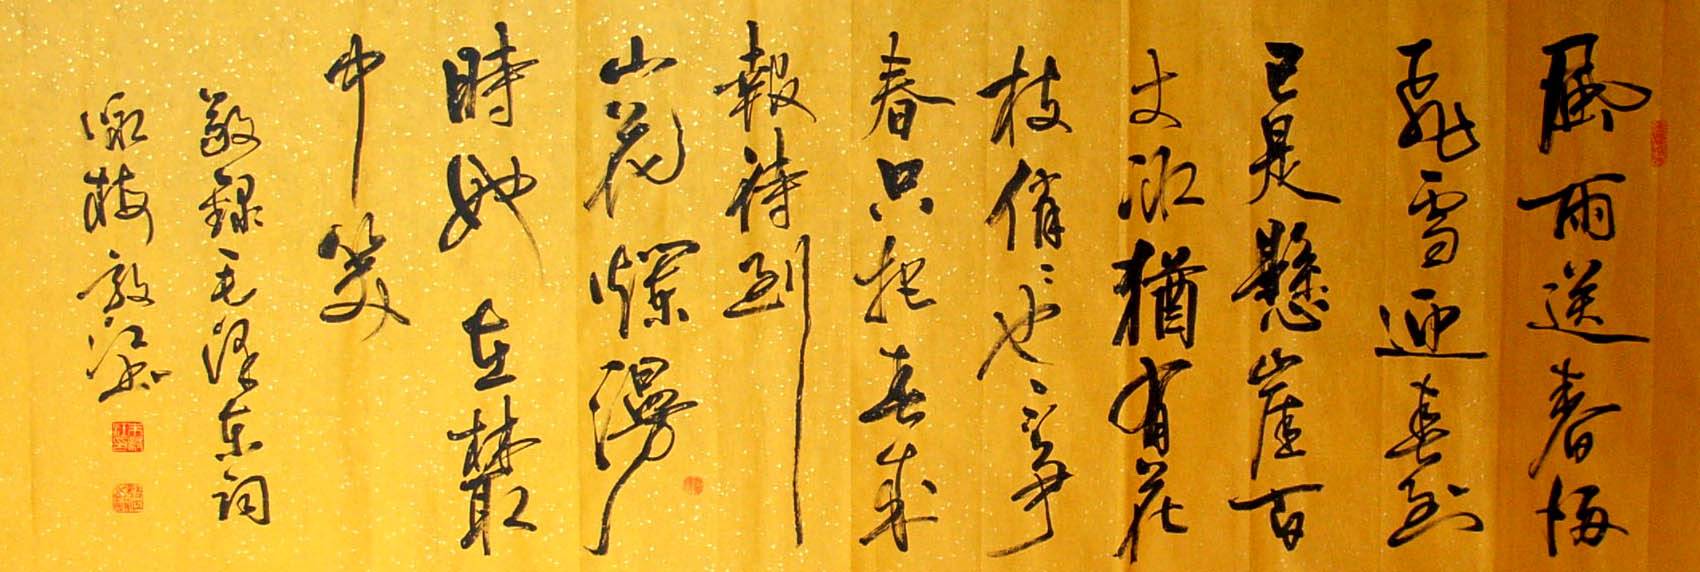 風雨送春歸
飛雪迎春到
已是懸崖百
丈冰猶有花
枝俏〻也不爭
春只把春來
報待到
山花爛漫
時她在叢
中笑
敬錄毛澤東詞
詠梅 敦江書